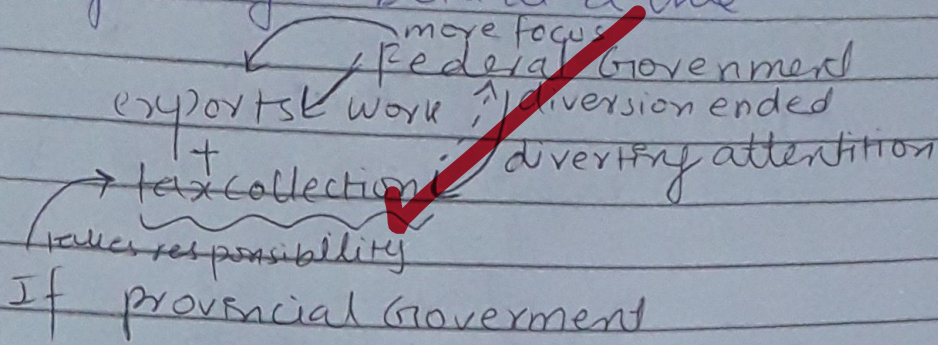 more focus
Federal Govenment
exports work diversion ended
+ diverting attentition
tax collection
takes responsibility
If provincial Goverment